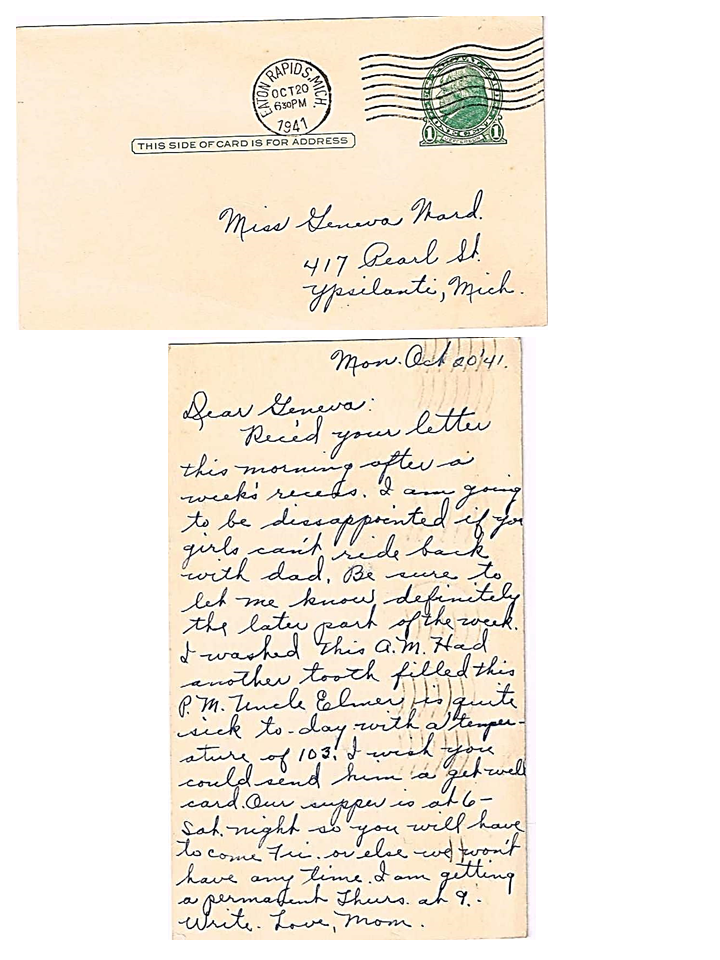 EATON RAPIDS, MICH.
OCT 20
630PM
1941
1 1
THIS SIDE OF CARD IS FOR ADDRESS
Miss Geneva Ward.
417 Pearl St.
Ypsilanti, Mich.
Mon. Oct 20 '41.
Dear Geneva:
Rec'ed your letter
this morning after a
week's recess. I am going
to be dissappointed if you
girls can't ride back
with dad. Be sure to
let me know definitely
the later part of the week.
I washed this A.M. Had
another tooth filled this
P.M. Uncle Elmer is quite
sick to-day with a temper-
ature of 103. I wish you
could send him a get well
card. Our supper is at 6-
Sat. night so you will have
to come Fri. or else we won't
have any time. I am getting
a permanent Thurs. at 9.
Write. Love, Mom.